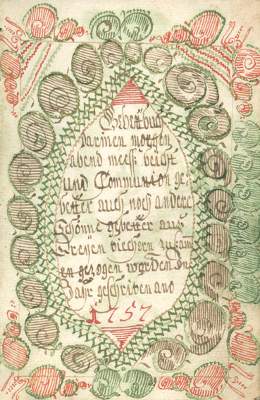 Gebettbuch
darinen morgen
abend mess: beicht
und Communion ge-
better auch noch andere
schönne gebetter aus
dreÿen biechern zusam-
en gezogen worden Im
Jahr geschriben ano
1757